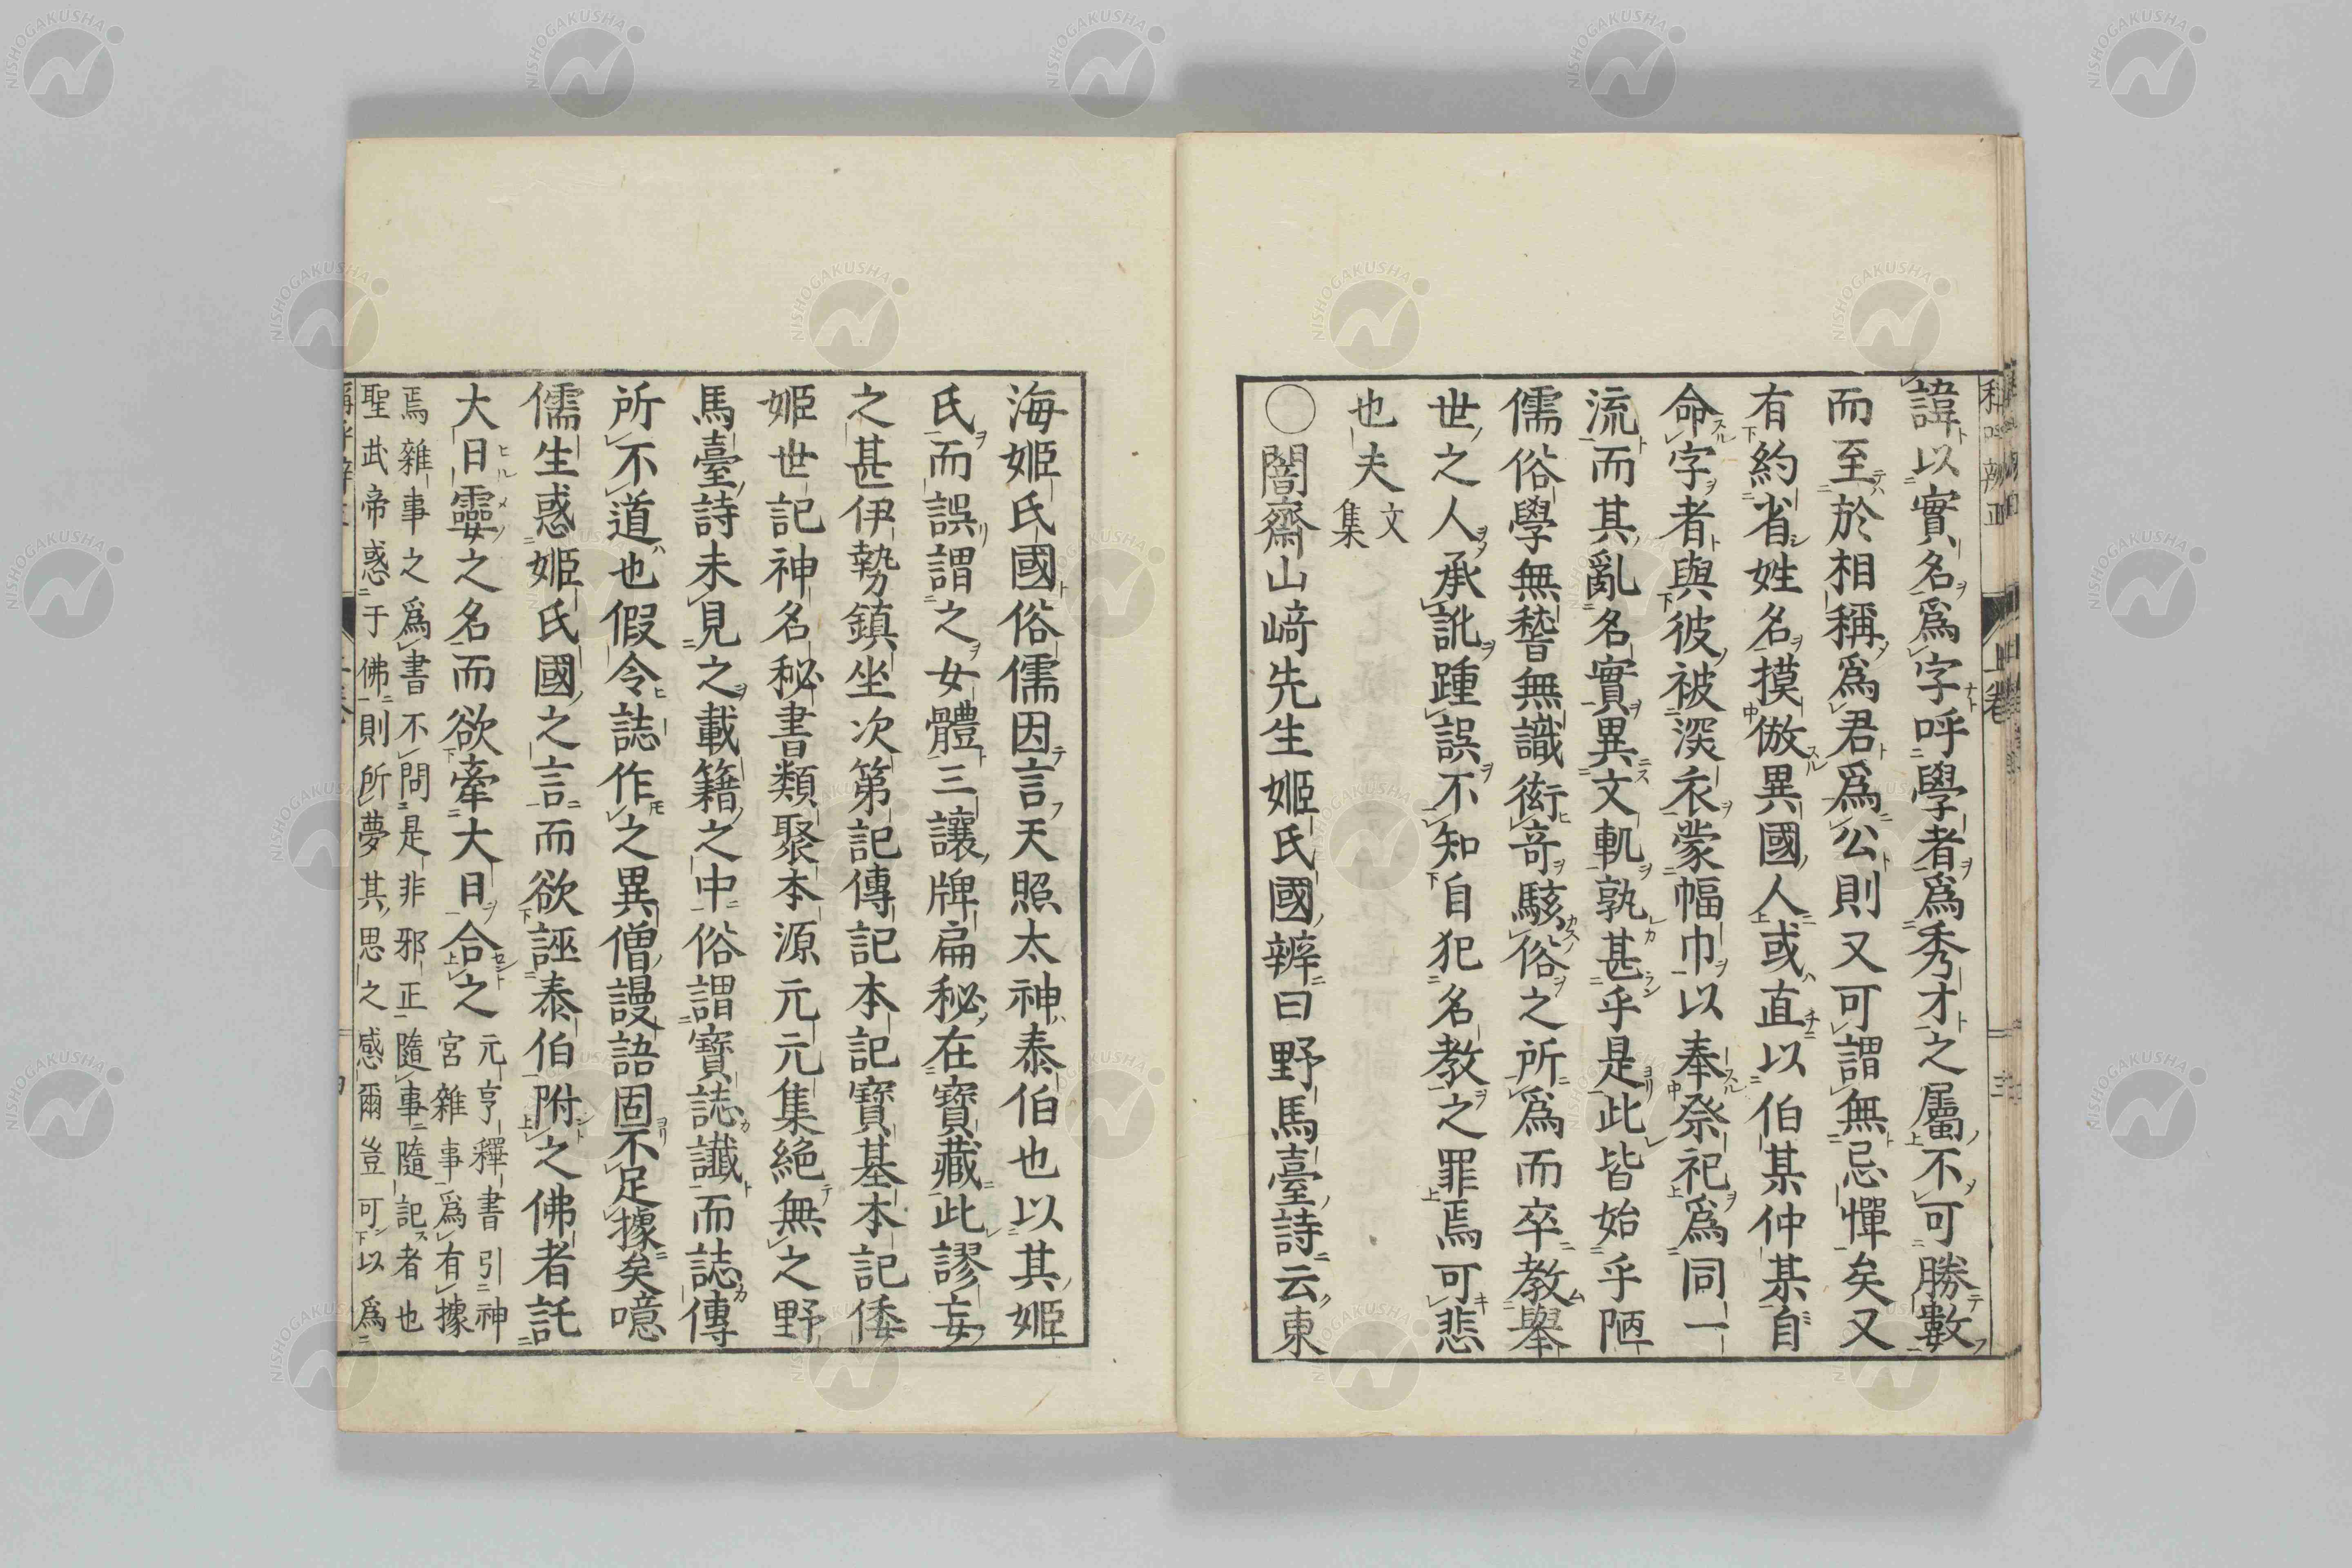 諱以實名爲字呼學者爲秀才之屬不可勝數
而至於相稱爲君爲公則又可謂無忌憚矣又
有約省姓名摸倣異國人或直以伯某仲某自
命字者與彼被深衣蒙幅巾以奉祭祀爲同一
流而其亂名實異文軌孰甚乎是此皆始乎陋
儒俗學無稽無識衒奇駭俗之所爲而卒教擧
世之人承訛踵誤不知自犯名教之罪焉可悲
也夫 文集
○闇齋山﨑先生姬氏國辨曰野馬臺詩云東
海姬氏國俗儒因言天照太神泰伯也以其姬
氏而誤謂之女體三讓牌扁秘在寶藏此謬妄
之甚伊勢鎮坐次第記傳記本記寶基本記倭
姬世記神名秘書類聚本源元元集絕無之野
馬臺詩未見之載籍之中俗謂寶誌讖而誌傳
所不道也假令誌作之異僧謾語固不足據矣噫
儒生惑姬氏國之言而欲誣泰伯附之佛者託
大日孁之名而欲牽大日合之
元亨釋書引神
宮雜事爲有據
焉雜事之爲書不問是非邪正隨事隨記者也
聖武帝惑于佛則所夢其思之感爾豈可以爲